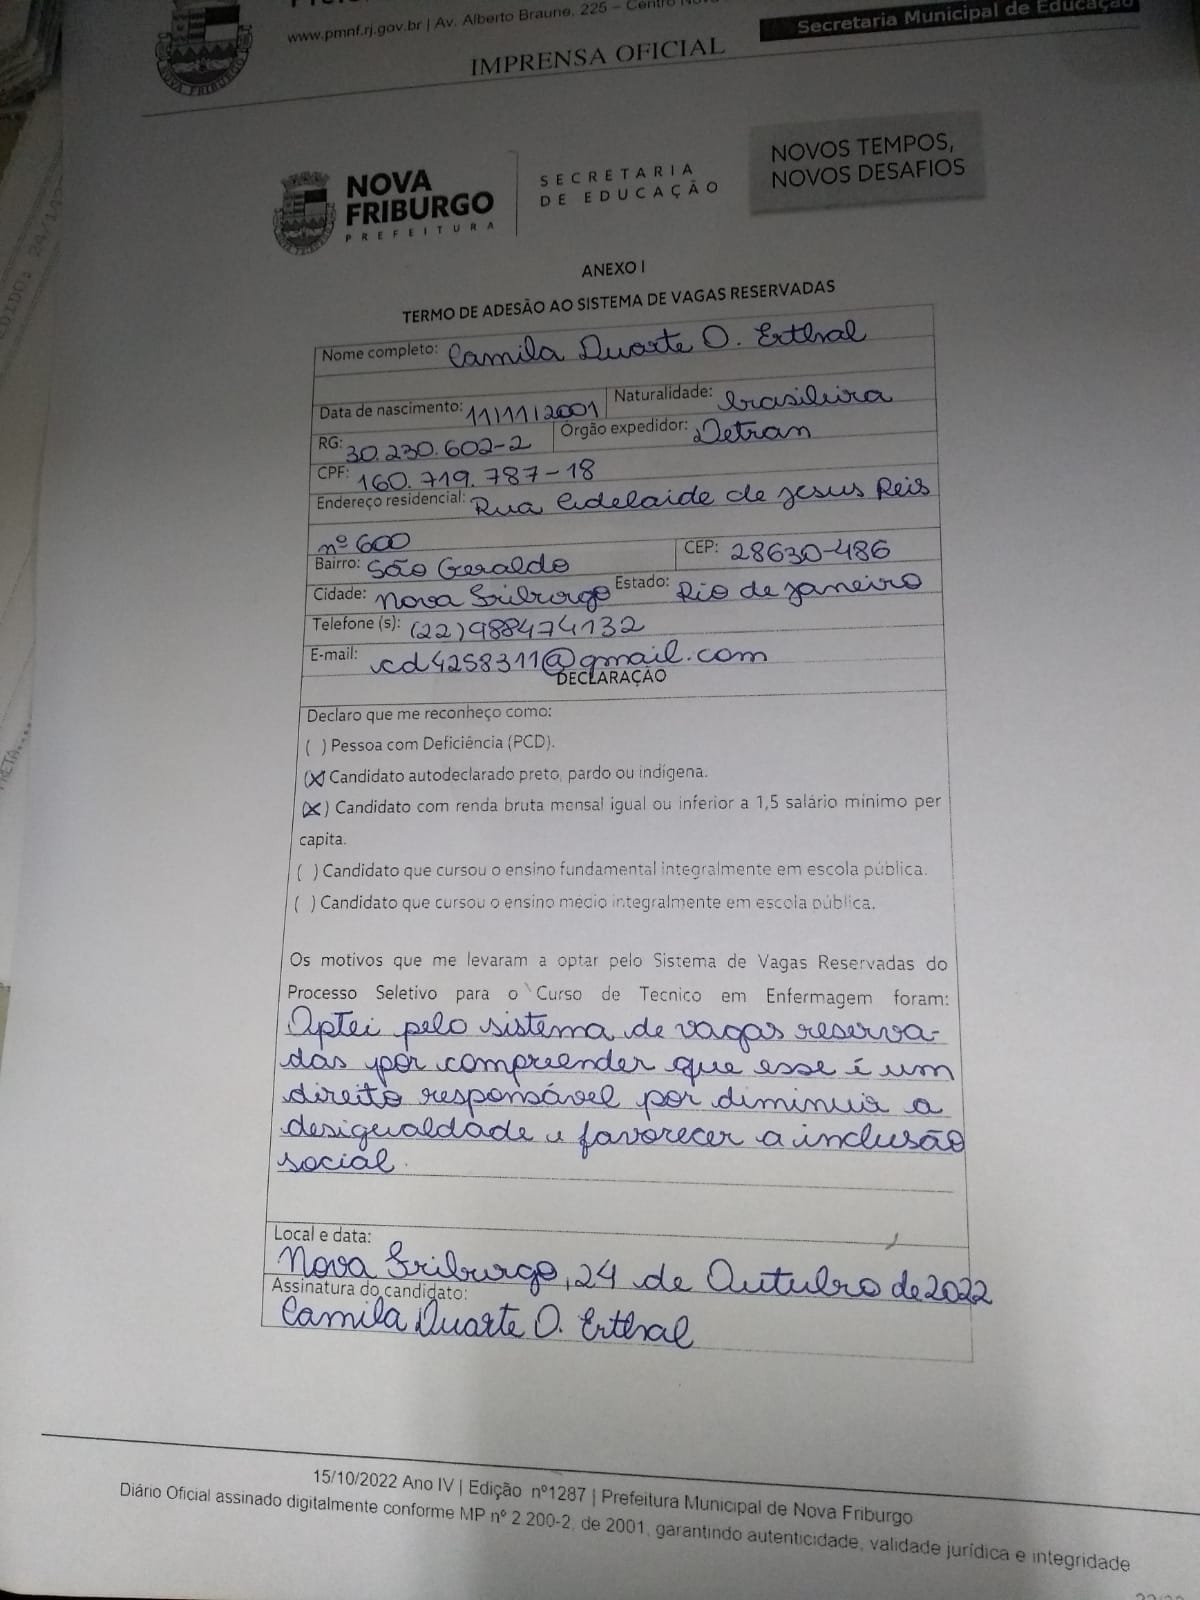 www.pmnf.rj.gov.br | Av. Alberto Braune, 225 – Centro
Secretaria Municipal de Educação
NOVA FRIBURGO
IMPRENSA OFICIAL
NOVA
FRIBURGO
PREFEITURA
SECRETARIA
DE EDUCAÇÃO
NOVOS TEMPOS,
NOVOS DESAFIOS
ANEXO I
TERMO DE ADESÃO AO SISTEMA DE VAGAS RESERVADAS
Nome completo: Camila Duarte O. Erthal
Data de nascimento: 11/11/2001 Naturalidade: brasileira
RG: 30.230.602-2 Órgão expedidor: Detran
CPF: 160.719.787-18
Endereço residencial: Rua Adelaide de Jesus Reis
nº 600
Bairro: São Geraldo CEP: 28630-486
Cidade: Nova Friburgo Estado: Rio de Janeiro
Telefone (s): (22)988474132
E-mail: cd4258311@gmail.com
DECLARAÇÃO
Declaro que me reconheço como:
( ) Pessoa com Deficiência (PCD).
(X) Candidato autodeclarado preto, pardo ou indígena.
(X) Candidato com renda bruta mensal igual ou inferior a 1,5 salário mínimo per
capita.
( ) Candidato que cursou o ensino fundamental integralmente em escola pública.
( ) Candidato que cursou o ensino médio integralmente em escola pública.
Os motivos que me levaram a optar pelo Sistema de Vagas Reservadas do
Processo Seletivo para o Curso de Tecnico em Enfermagem foram:
Optei pelo sistema de vagas reserva-
das por compreender que esse é um
direito responsável por diminuir a
desigualdade e favorecer a inclusão
social.
Local e data:
Nova Friburgo, 24 de Outubro de 2022
Assinatura do candidato:
Camila Duarte O. Erthal
15/10/2022 Ano IV | Edição nº1287 | Prefeitura Municipal de Nova Friburgo
Diário Oficial assinado digitalmente conforme MP nº 2.200-2, de 2001, garantindo autenticidade, validade jurídica e integridade